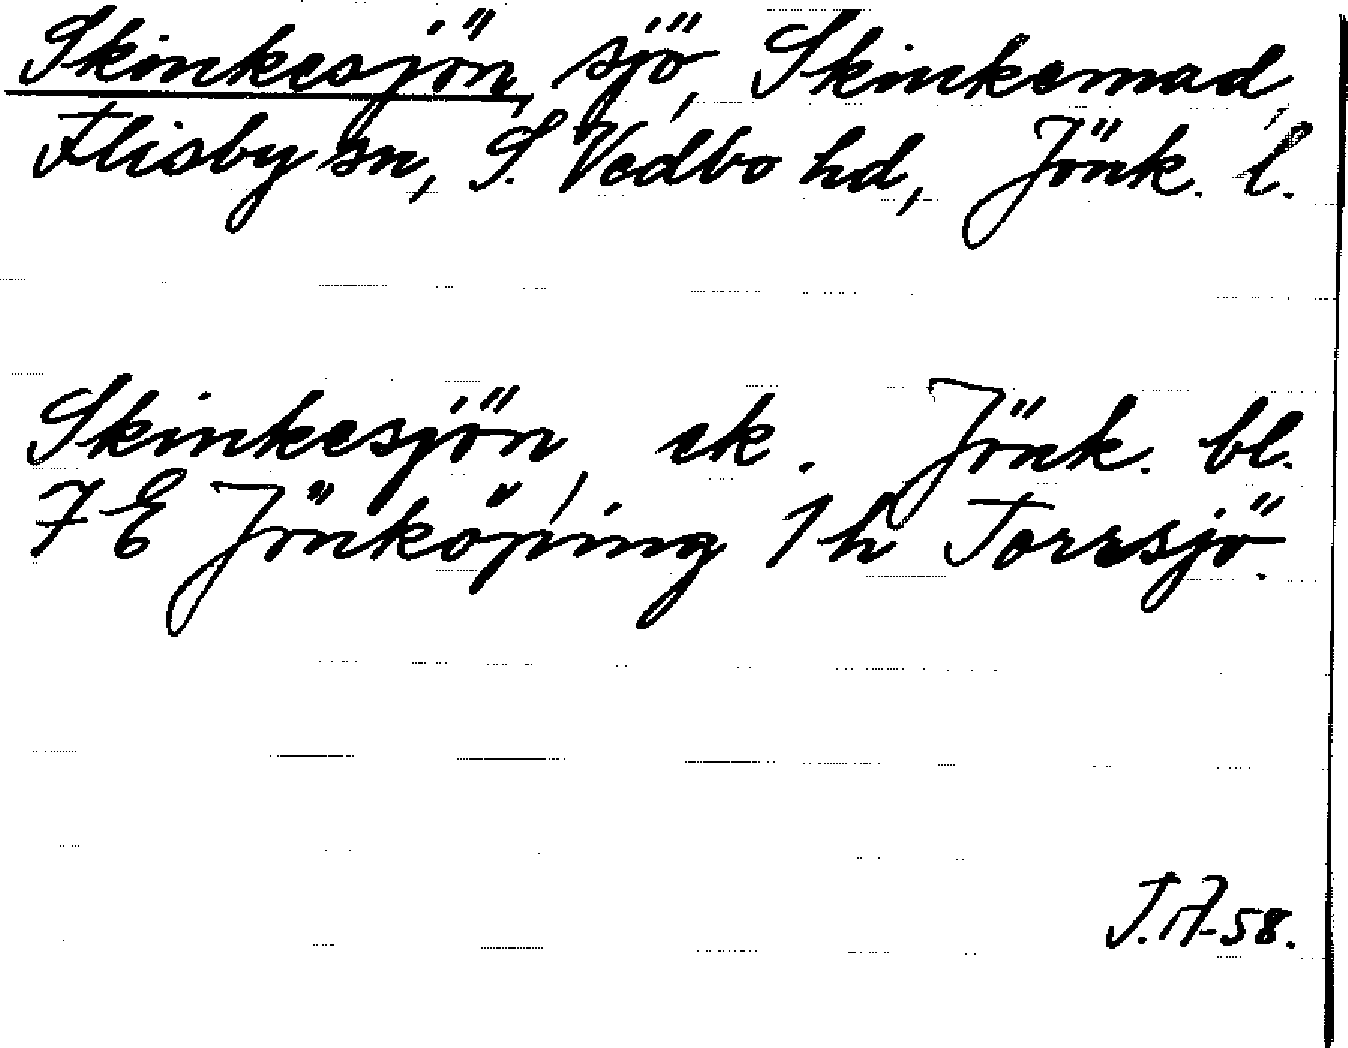 Skinkesjön, sjö, Skinkemad,
Flisby sn, S. Vedbo hd, Jönk. l.
Skinkesjön, ek. Jönk. bl.
7 E Jönköping 1 h Torrsjö.
J.A-58.